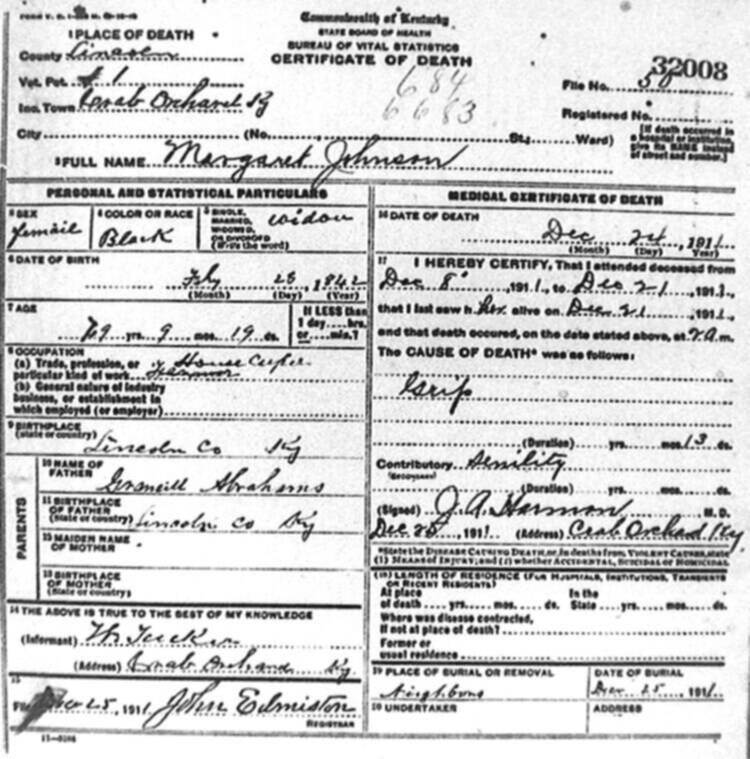 Commonwealth of Kentucky
STATE BOARD OF HEALTH
BUREAU OF VITAL STATISTICS
CERTIFICATE OF DEATH
1 PLACE OF DEATH
County Lincoln
Vot. Pct. # 1
Inc. Town Crab Orchard Ky
City (No. St.; Ward)
684
6683
32008
File No. 50
Registered No.
[If death occurred in
a hospital or institution
give its NAME instead
of street and number.]
2 FULL NAME Margaret Johnson
PERSONAL AND STATISTICAL PARTICULARS
3 SEX
Femail
4 COLOR OR RACE
Black
5 SINGLE,
MARRIED,
WIDOWED,
OR DIVORCED
(Write the word)
Widow
6 DATE OF BIRTH
28, 1842
(Month) (Day) (Year)
7 AGE
69 yrs. 9 mos. 19 ds.
If LESS than
1 day....hrs.
or......min.?
8 OCCUPATION
(a) Trade, profession, or House
particular kind of work
(b) General nature of industry
business, or establishment in
which employed (or employer)
9 BIRTHPLACE
(State or country)
Lincoln Co Ky
PARENTS
10 NAME OF
FATHER
Abrahams
11 BIRTHPLACE
OF FATHER
(State or country) Lincoln Co Ky
12 MAIDEN NAME
OF MOTHER
13 BIRTHPLACE
OF MOTHER
(State or country)
14 THE ABOVE IS TRUE TO THE BEST OF MY KNOWLEDGE
(Informant)
(Address) Crab Orchard Ky
15
Filed Dec 25, 1911 John Edmiston
REGISTRAR
MEDICAL CERTIFICATE OF DEATH
16 DATE OF DEATH
Dec 24, 1911
(Month) (Day) (Year)
17 I HEREBY CERTIFY, That I attended deceased from
Dec 8, 1911, to Dec 21, 1911,
that I last saw her alive on Dec 21, 1911,
and that death occured, on the date stated above, at 2 a.m.
The CAUSE OF DEATH* was as follows:
Grip
(Duration) yrs. mos. 13 ds.
Contributory Senility
(Secondary)
(Duration) yrs. mos. ds.
(Signed) J. A. Harmon M. D.
Dec 25, 1911 (Address) Crab Orchard Ky
*State the DISEASE CAUSING DEATH, or, in deaths from VIOLENT CAUSES, state
(1) MEANS OF INJURY; and (2) whether ACCIDENTAL, SUICIDAL or HOMICIDAL
(18) LENGTH OF RESIDENCE (FOR HOSPITALS, INSTITUTIONS, TRANSIENTS
OR RECENT RESIDENTS)
At place In the
of death yrs. mos. ds. State yrs. mos. ds.
Where was disease contracted,
If not at place of death?
Former or
usual residence
19 PLACE OF BURIAL OR REMOVAL
Neighbors
DATE OF BURIAL
Dec 25 1911
20 UNDERTAKER
ADDRESS